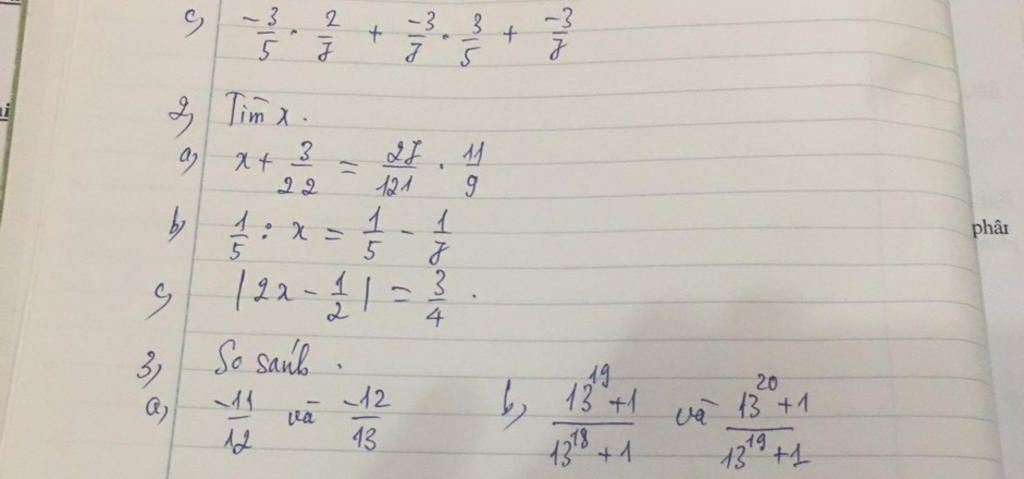 c) -3/5 . 2/7 + -3/7 . 3/5 + -3/7
2) Tìm x.
a) x + 3/22 = 27/121 . 11/9
b) 1/5 : x = 1/5 - 1/7
phân
c) |2x - 1/2| = 3/4 .
3) So sánh .
a) -11/12 và -12/13 b) 13^19+1/13^18+1 và 13^20+1/13^19+1